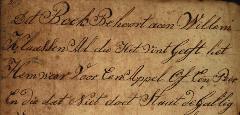 Dit Boek Behoort aan Willem
Klaassen Al die Het vint Geeft het
Hem waar Voor Een Appel Of Een Peer
En die dat Niet doet Haal de Gallig